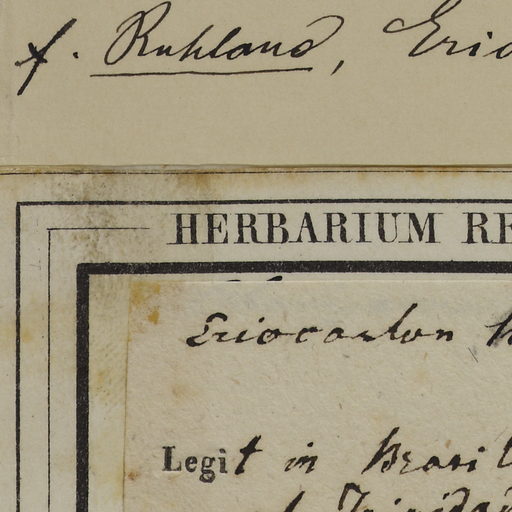 f. Ruhland, Erio
HERBARIUM RE
Eriocaulon
Legit in Brasil
Trinidad